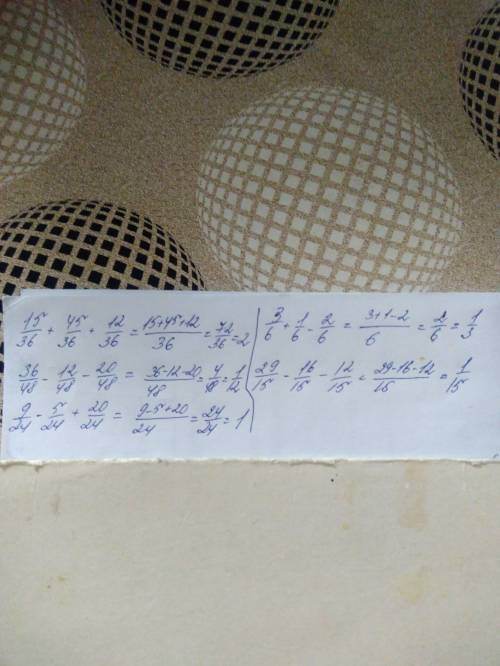 15/36 + 45/36 + 12/36 = (15+45+12)/36 = 72/36 = 2
36/48 - 12/48 - 20/48 = (36-12-20)/48 = 4/48 = 1/12
9/24 - 5/24 + 20/24 = (9-5+20)/24 = 24/24 = 1
3/6 + 1/6 - 2/6 = (3+1-2)/6 = 2/6 = 1/3
29/15 - 16/15 - 12/15 = (29-16-12)/15 = 1/15